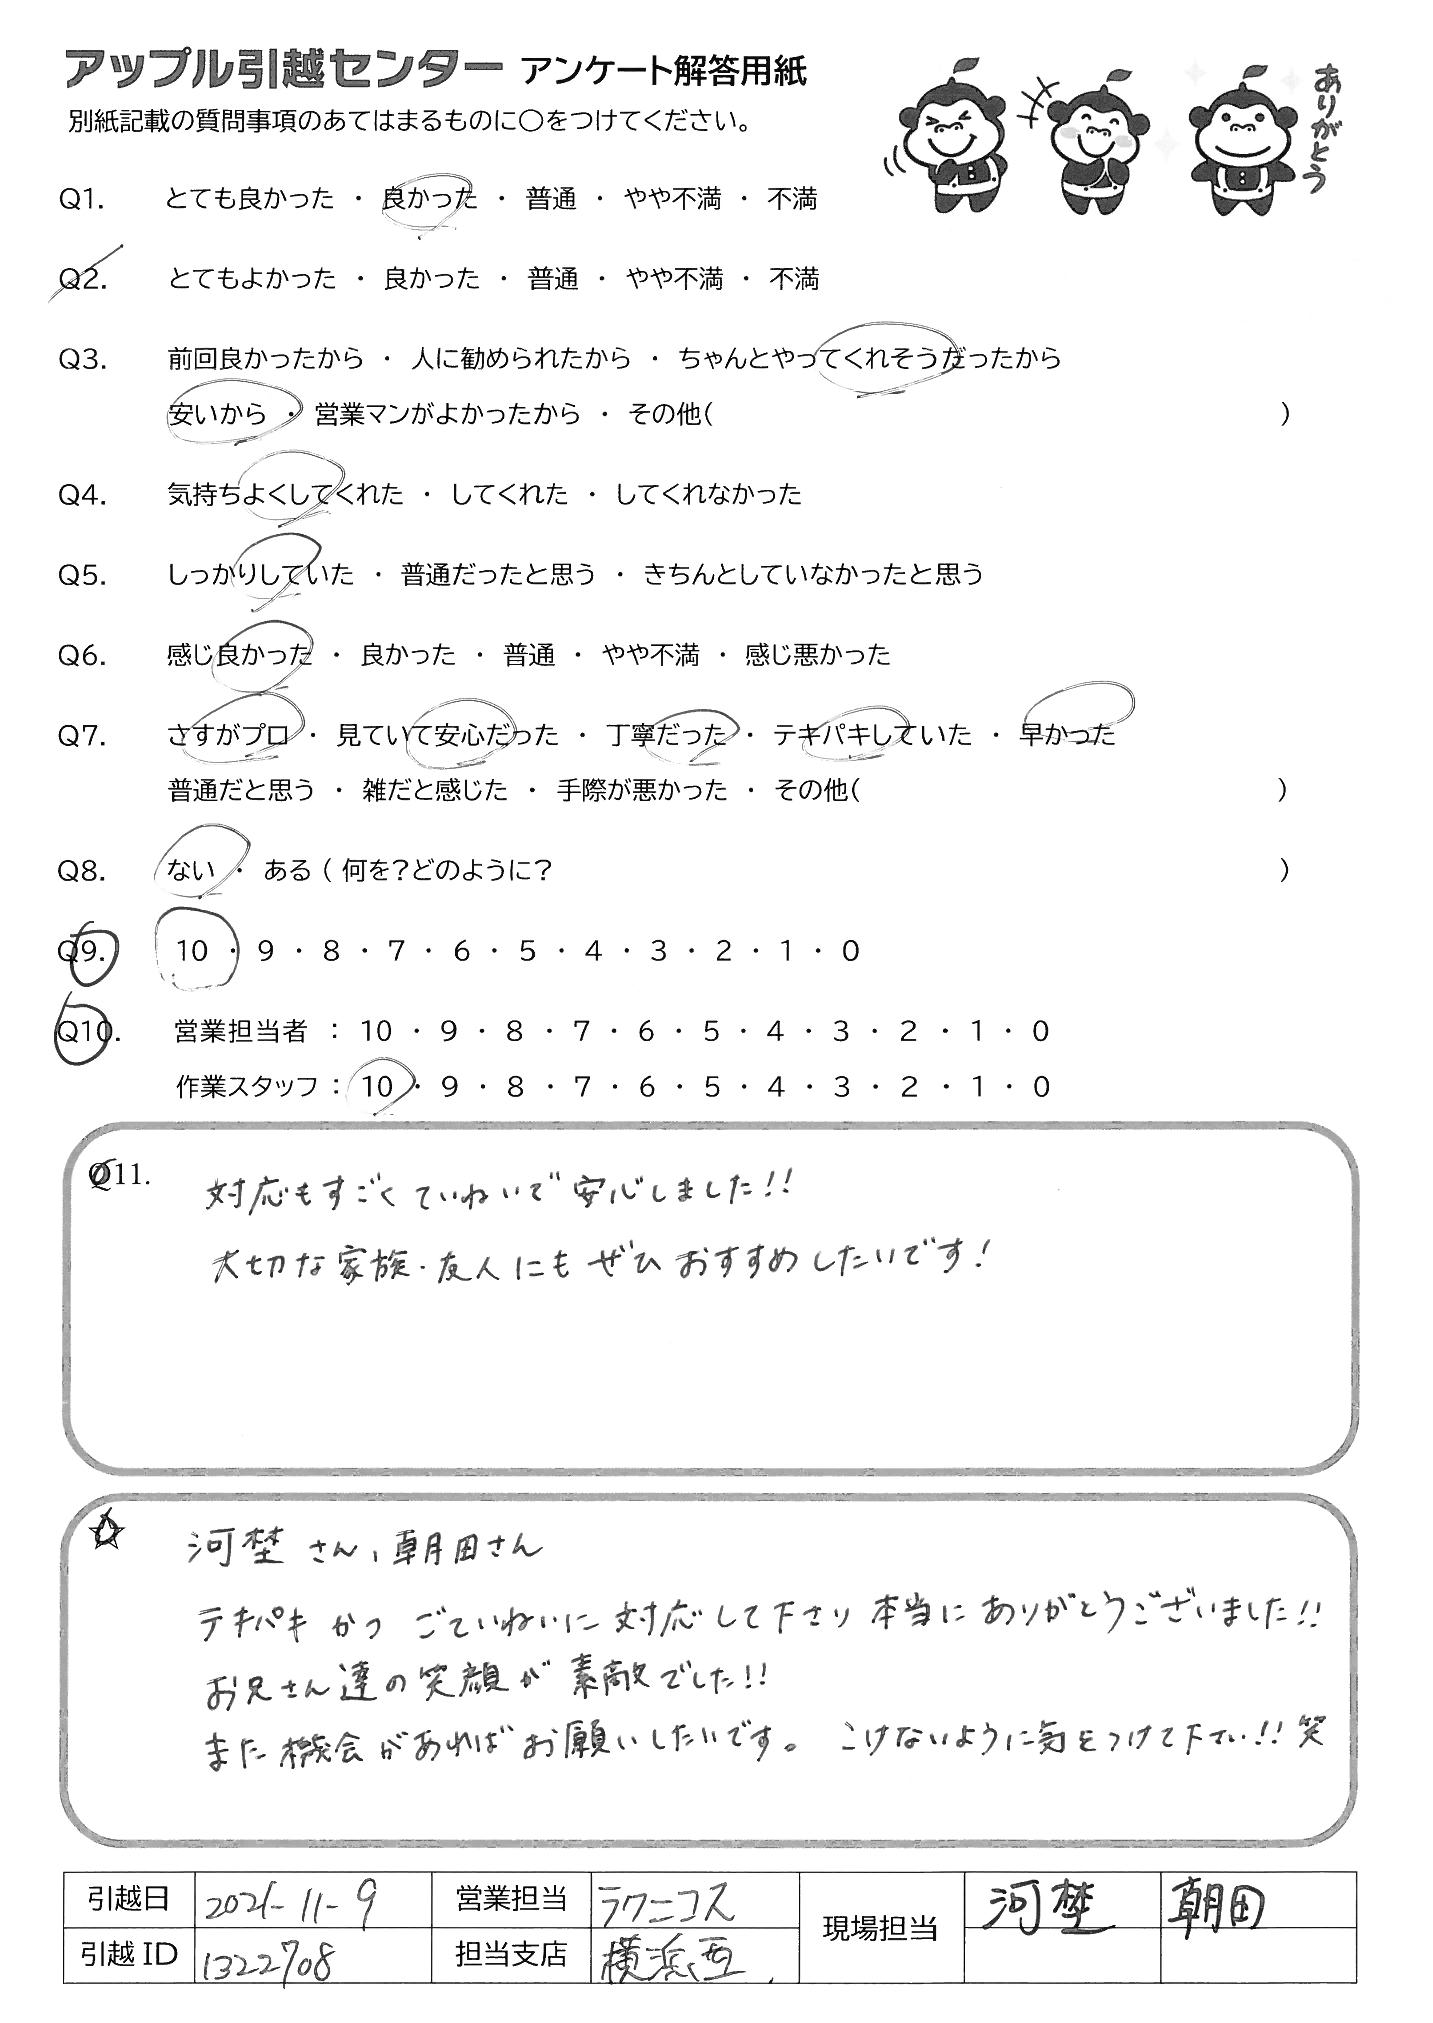 アップル引越センター アンケート解答用紙
ありがとう
別紙記載の質問事項のあてはまるものに〇をつけてください。
Q1. とても良かった ・ 良かった ・ 普通 ・ やや不満 ・ 不満
Q2. とてもよかった ・ 良かった ・ 普通 ・ やや不満 ・ 不満
Q3. 前回良かったから ・ 人に勧められたから ・ ちゃんとやってくれそうだったから
安いから ・ 営業マンがよかったから ・ その他( )
Q4. 気持ちよくしてくれた ・ してくれた ・ してくれなかった
Q5. しっかりしていた ・ 普通だったと思う ・ きちんとしていなかったと思う
Q6. 感じ良かった ・ 良かった ・ 普通 ・ やや不満 ・ 感じ悪かった
Q7. さすがプロ ・ 見ていて安心だった ・ 丁寧だった ・ テキパキしていた ・ 早かった
普通だと思う ・ 雑だと感じた ・ 手際が悪かった ・ その他( )
Q8. ない ・ ある ( 何を?どのように? )
Q9. 10 ・ 9 ・ 8 ・ 7 ・ 6 ・ 5 ・ 4 ・ 3 ・ 2 ・ 1 ・ 0
Q10. 営業担当者 : 10 ・ 9 ・ 8 ・ 7 ・ 6 ・ 5 ・ 4 ・ 3 ・ 2 ・ 1 ・ 0
作業スタッフ : 10 ・ 9 ・ 8 ・ 7 ・ 6 ・ 5 ・ 4 ・ 3 ・ 2 ・ 1 ・ 0
Q11. 対応もすごくていねいで安心しました!!
大切な家族・友人にもぜひおすすめしたいです!
☆ 河埜さん、朝田さん
テキパキかつ ごていねいに対応して下さり本当にありがとうございました!!
お兄さん達の笑顔が素敵でした!!
また機会があればお願いしたいです。 こけないように気をつけて下さい!! 笑
引越日 2021-11-9 営業担当 ラクニコス 現場担当 河埜 朝田
引越ID 1322708 担当支店 横浜西